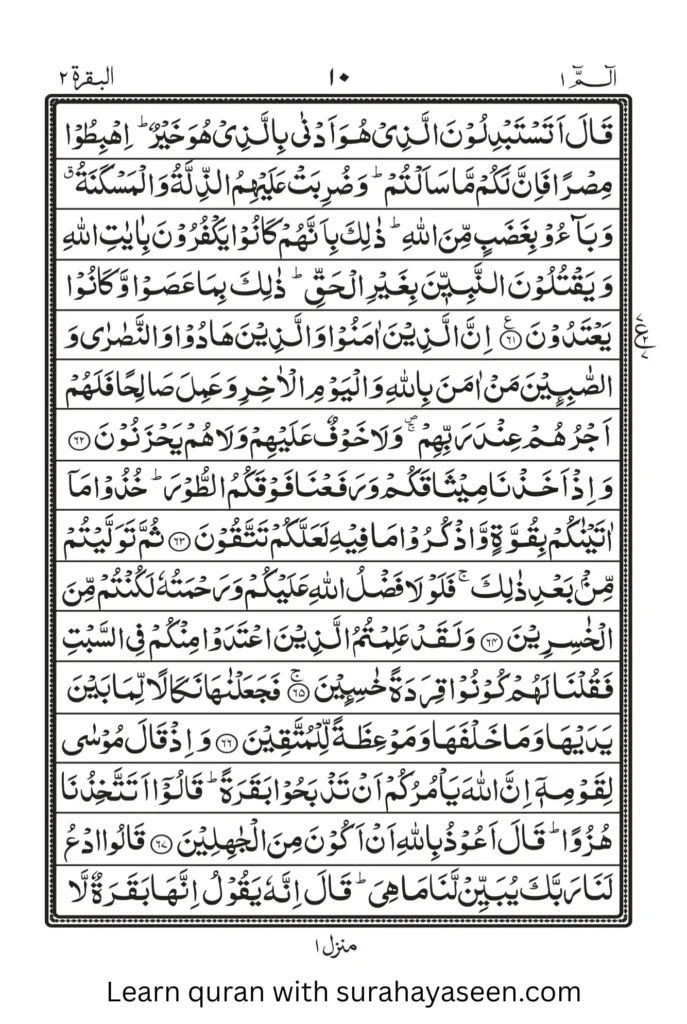 الٓـمّٓ ١
١٠
البقرة ٢
قَالَ اَتَسْتَبْدِلُوْنَ الَّذِىْ هُوَ اَدْنٰى بِالَّذِىْ هُوَ خَيْرٌ ؕ اِهْبِطُوْا
مِصْرًا فَاِنَّ لَكُمْ مَّا سَاَلْتُمْ ؕ وَضُرِبَتْ عَلَيْهِمُ الذِّلَّةُ وَالْمَسْكَنَةُ ۗ
وَبَآءُوْ بِغَضَبٍ مِّنَ اللّٰهِ ؕ ذٰلِكَ بِاَنَّهُمْ كَانُوْا يَكْفُرُوْنَ بِاٰيٰتِ اللّٰهِ
وَيَقْتُلُوْنَ النَّبِيّٖنَ بِغَيْرِ الْحَقِّ ؕ ذٰلِكَ بِمَا عَصَوْا وَّكَانُوْا
يَعْتَدُوْنَ ﴿٦١﴾ ع اِنَّ الَّذِيْنَ اٰمَنُوْا وَالَّذِيْنَ هَادُوْا وَالنَّصٰرٰى وَ
الصّٰبِـِٕيْنَ مَنْ اٰمَنَ بِاللّٰهِ وَالْيَوْمِ الْاٰخِرِ وَعَمِلَ صَالِحًا فَلَهُمْ
اَجْرُهُمْ عِنْدَ رَبِّهِمْ ۚ وَلَا خَوْفٌ عَلَيْهِمْ وَلَا هُمْ يَحْزَنُوْنَ ﴿٦٢﴾
وَاِذْ اَخَذْنَا مِيْثَاقَكُمْ وَرَفَعْنَا فَوْقَكُمُ الطُّوْرَ ؕ خُذُوْا مَآ
اٰتَيْنٰكُمْ بِقُوَّةٍ وَّاذْكُرُوْا مَا فِيْهِ لَعَلَّكُمْ تَتَّقُوْنَ ﴿٦٣﴾ ثُمَّ تَوَلَّيْتُمْ
مِّنْۢ بَعْدِ ذٰلِكَ ۚ فَلَوْلَا فَضْلُ اللّٰهِ عَلَيْكُمْ وَرَحْمَتُهٗ لَكُنْتُمْ مِّنَ
الْخٰسِرِيْنَ ﴿٦٤﴾ وَلَقَدْ عَلِمْتُمُ الَّذِيْنَ اعْتَدَوْا مِنْكُمْ فِى السَّبْتِ
فَقُلْنَا لَهُمْ كُوْنُوْا قِرَدَةً خٰسِـِٕيْنَ ﴿٦٥﴾ ۚ فَجَعَلْنٰهَا نَكَالًا لِّمَا بَيْنَ
يَدَيْهَا وَمَا خَلْفَهَا وَمَوْعِظَةً لِّلْمُتَّقِيْنَ ﴿٦٦﴾ وَاِذْ قَالَ مُوْسٰى
لِقَوْمِهٖۤ اِنَّ اللّٰهَ يَاْمُرُكُمْ اَنْ تَذْبَحُوْا بَقَرَةً ؕ قَالُوْٓا اَتَتَّخِذُنَا
هُزُوًا ؕ قَالَ اَعُوْذُ بِاللّٰهِ اَنْ اَكُوْنَ مِنَ الْجٰهِلِيْنَ ﴿٦٧﴾ قَالُوا ادْعُ
لَنَا رَبَّكَ يُبَيِّنْ لَّنَا مَا هِىَ ؕ قَالَ اِنَّهٗ يَقُوْلُ اِنَّهَا بَقَرَةٌ لَّا
منزل ١
Learn quran with surahayaseen.com